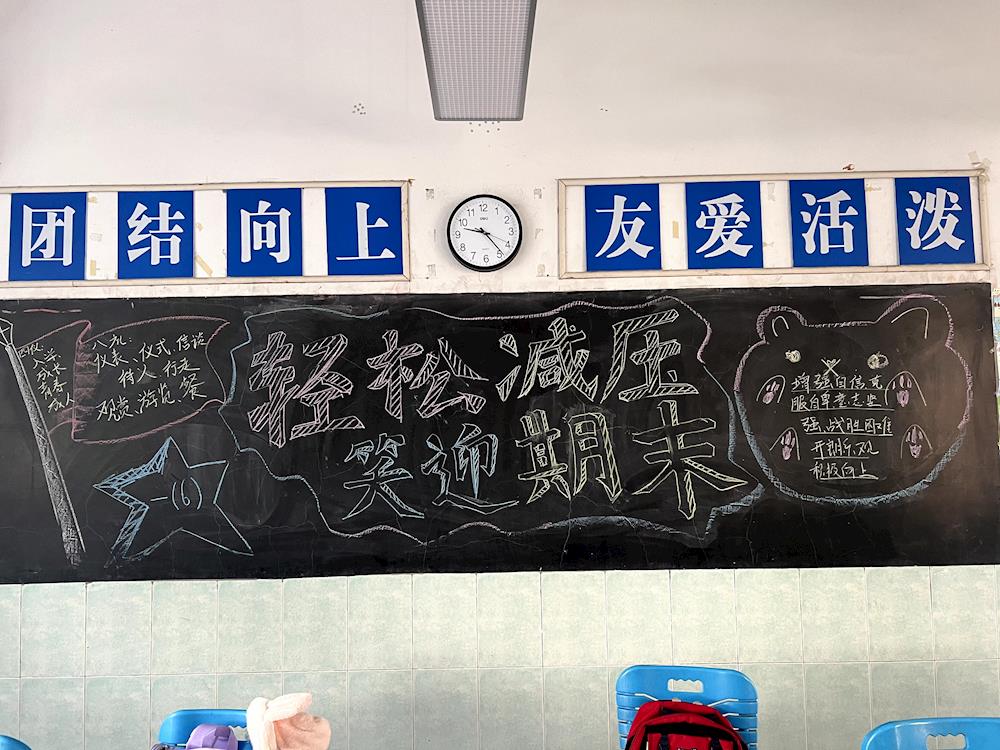 团结向上
友爱活泼
12
1
2
3
4
5
6
7
8
9
10
11
四仪:
入学
成长
青春
成人
八礼:
仪表、仪式、言谈
待人、行走
观赏、游览、餐
轻松减压
笑迎期末
增强自信克
服自卑意志坚
强、战胜困难
开朗乐观
积极向上